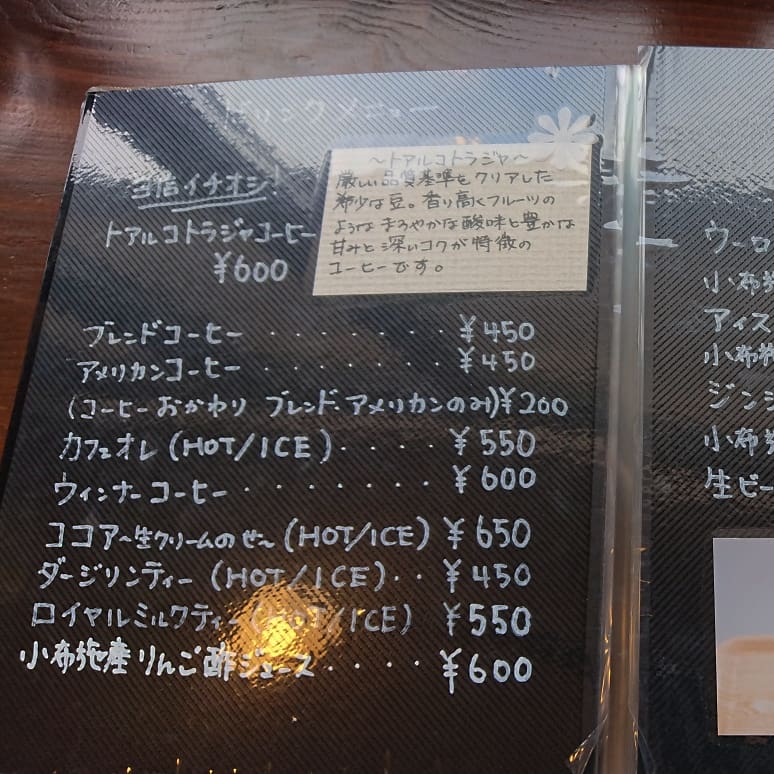 ドリンクメニュー
当店イチオシ!
トアルコトラジャコーヒー
¥600
~トアルコトラジャ~
厳しい品質基準をクリアした
希少な豆。香り高くフルーツの
ような まろやかな酸味と豊かな
甘みと深いコクが特徴の
コーヒーです。
ブレンドコーヒー ········ ¥450
アメリカンコーヒー ······· ¥450
(コーヒーおかわり ブレンド・アメリカンのみ)¥200
カフェオレ(HOT/ICE)···· ¥550
ウィンナーコーヒー ······· ¥600
ココア~生クリームのせ~(HOT/ICE) ¥650
ダージリンティー(HOT/ICE)·· ¥450
ロイヤルミルクティー(HOT/ICE) ¥550
小布施産りんご酢ジュース ···· ¥600
ウーロ
小布施
アイス
小布施
ジンジ
小布施
生ビー